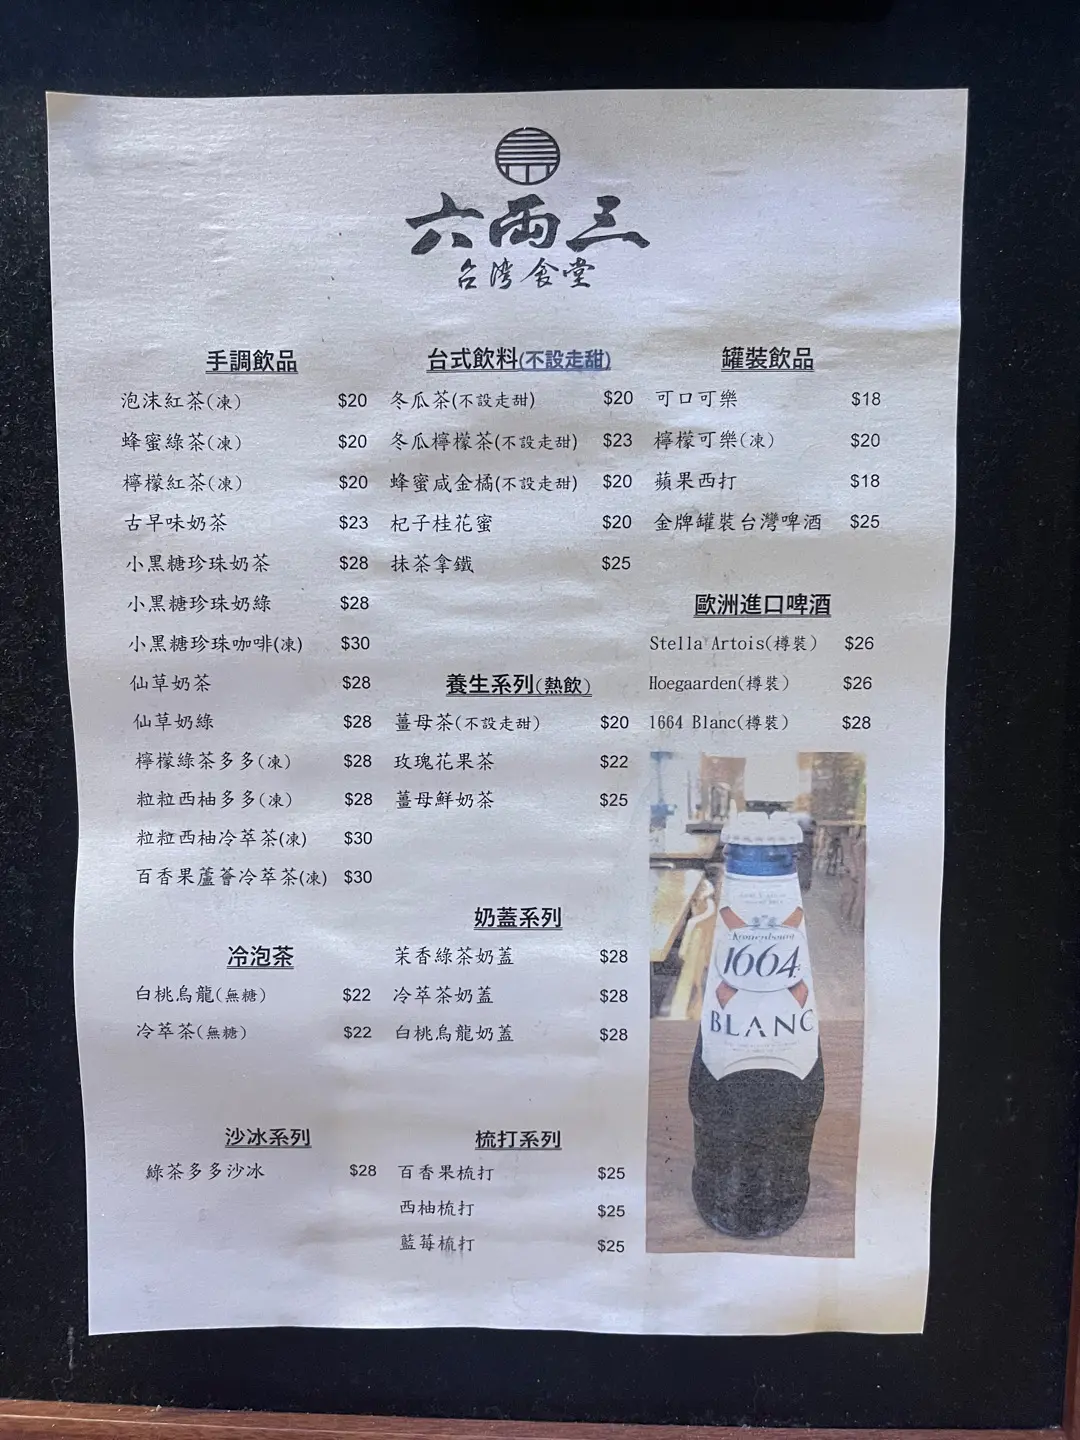 六両三
台湾食堂
手調飲品
泡沫紅茶(凍) $20
蜂蜜綠茶(凍) $20
檸檬紅茶(凍) $20
古早味奶茶 $23
小黑糖珍珠奶茶 $28
小黑糖珍珠奶綠 $28
小黑糖珍珠咖啡(凍) $30
仙草奶茶 $28
仙草奶綠 $28
檸檬綠茶多多(凍) $28
粒粒西柚多多(凍) $28
粒粒西柚冷萃茶(凍) $30
百香果蘆薈冷萃茶(凍) $30
冷泡茶
白桃烏龍(無糖) $22
冷萃茶(無糖) $22
沙冰系列
綠茶多多沙冰 $28
台式飲料(不設走甜)
冬瓜茶(不設走甜) $20
冬瓜檸檬茶(不設走甜) $23
蜂蜜咸金橘(不設走甜) $20
杞子桂花蜜 $20
抹茶拿鐵 $25
養生系列(熱飲)
薑母茶(不設走甜) $20
玫瑰花果茶 $22
薑母鮮奶茶 $25
奶蓋系列
茉香綠茶奶蓋 $28
冷萃茶奶蓋 $28
白桃烏龍奶蓋 $28
梳打系列
百香果梳打 $25
西柚梳打 $25
藍莓梳打 $25
罐裝飲品
可口可樂 $18
檸檬可樂(凍) $20
蘋果西打 $18
金牌罐裝台灣啤酒 $25
歐洲進口啤酒
Stella Artois(樽裝) $26
Hoegaarden(樽裝) $26
1664 Blanc(樽裝) $28
Kronenbourg
1664
BLANC